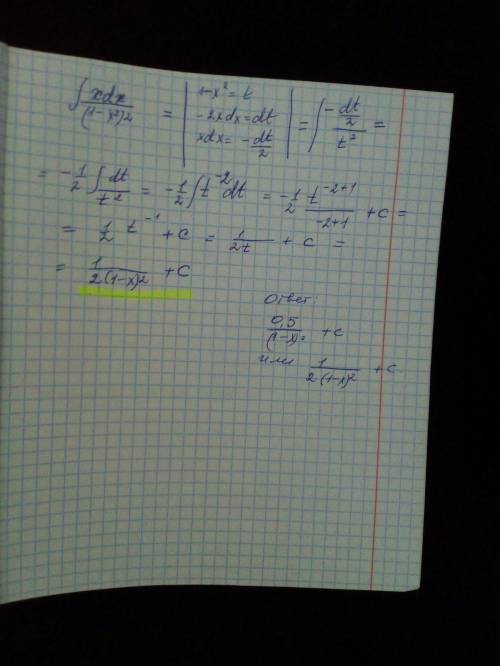 ∫ xdx/(1-x²)² = | 1-x² = t
-2xdx = dt
xdx = -dt/2 | = ∫ (-dt/2)/t² =
= -1/2 ∫ dt/t² = -1/2 ∫ t⁻² dt = -1/2 t⁻²⁺¹/(-2+1) + c =
= 1/2 t⁻¹ + c = 1/2t + c =
= 1/2(1-x)² + C
Ответ:
0,5/(1-x)² + c
или 1/2(1-x)² + c